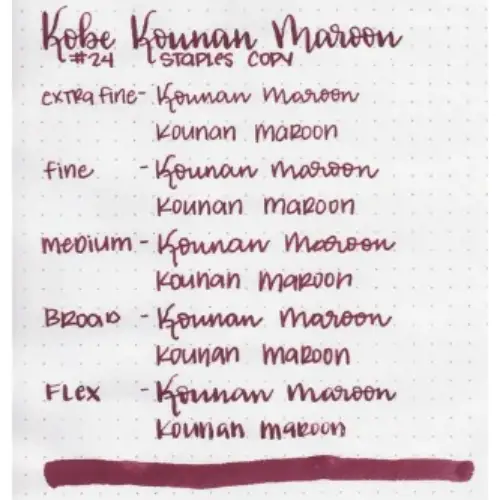 Kobe Kounan Maroon
#24 Staples Copy
extra fine - Kounan Maroon
Kounan Maroon
fine - Kounan Maroon
Kounan Maroon
medium - Kounan Maroon
Kounan Maroon
Broad - Kounan Maroon
Kounan Maroon
Flex - Kounan Maroon
Kounan Maroon